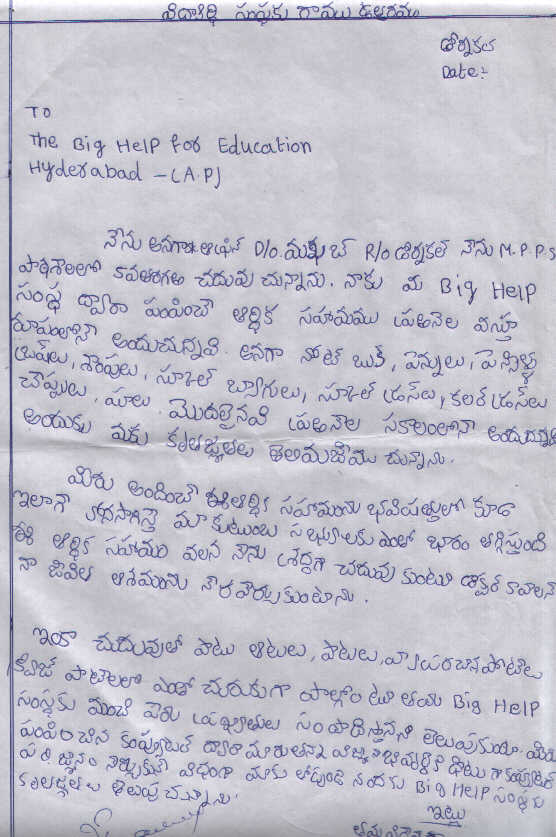 విద్యార్థి సంస్థకు రాయు ఉత్తరం
డోర్నకల్
Date:-
To
The Big Help for Education
Hyderabad - (A.P)
నేను D/o. R/o డోర్నకల్ నేను M.P.P.S
పాఠశాలలో చదువు చున్నాను. నాకు మీ Big Help
సంస్థ ద్వారా పంపించే ఆర్థిక సహాయము ప్రతినెల వస్తూ
రూపంలోనే అందుచున్నవి. అనగా నోట్ బుక్, పెన్నులు, పెన్సిళ్ళు
బ్రష్‌లు, స్కూల్ బ్యాగులు, స్కూల్ డ్రస్‌లు, కలర్ డ్రస్‌లు
చెప్పులు, షూలు మొదలైనవి ప్రతినెల సకాలంలోనే
అందుకు మీకు కృతజ్ఞతలు తెలియజేయు చున్నాను.
మీరు అందించే ఈ ఆర్థిక సహాయంను భవిష్యత్తులో కూడా
ఇలాగే కొనసాగిస్తే మా కుటుంబ సభ్యులకు ఎంతో భారం తగ్గిస్తుంది
ఈ ఆర్థిక సహాయం వలన నేను శ్రద్ధగా చదువు కుంటూ డాక్టర్ కావాలనే
నా జీవిత ఆశయంను నెరవేర్చుకుంటాను.
ఇంకా చదువుతో పాటు ఆటలు, పాటలు, వ్యాసరచన పోటీలు
క్విజ్ పోటీలలో ఎంతో చురుకుగా పాల్గొంటూ Big Help
సంస్థకు మంచి పేరు ప్రఖ్యాతులు సంపాదిస్తానని తెలుపుకుంటూ. మీరు
పంపించిన కంప్యూటర్ ద్వారా
నేర్చుకునే విధంగా మాకు Big Help సంస్థకు
కృతజ్ఞతలు తెలుపు చున్నాను.
ఇట్లు